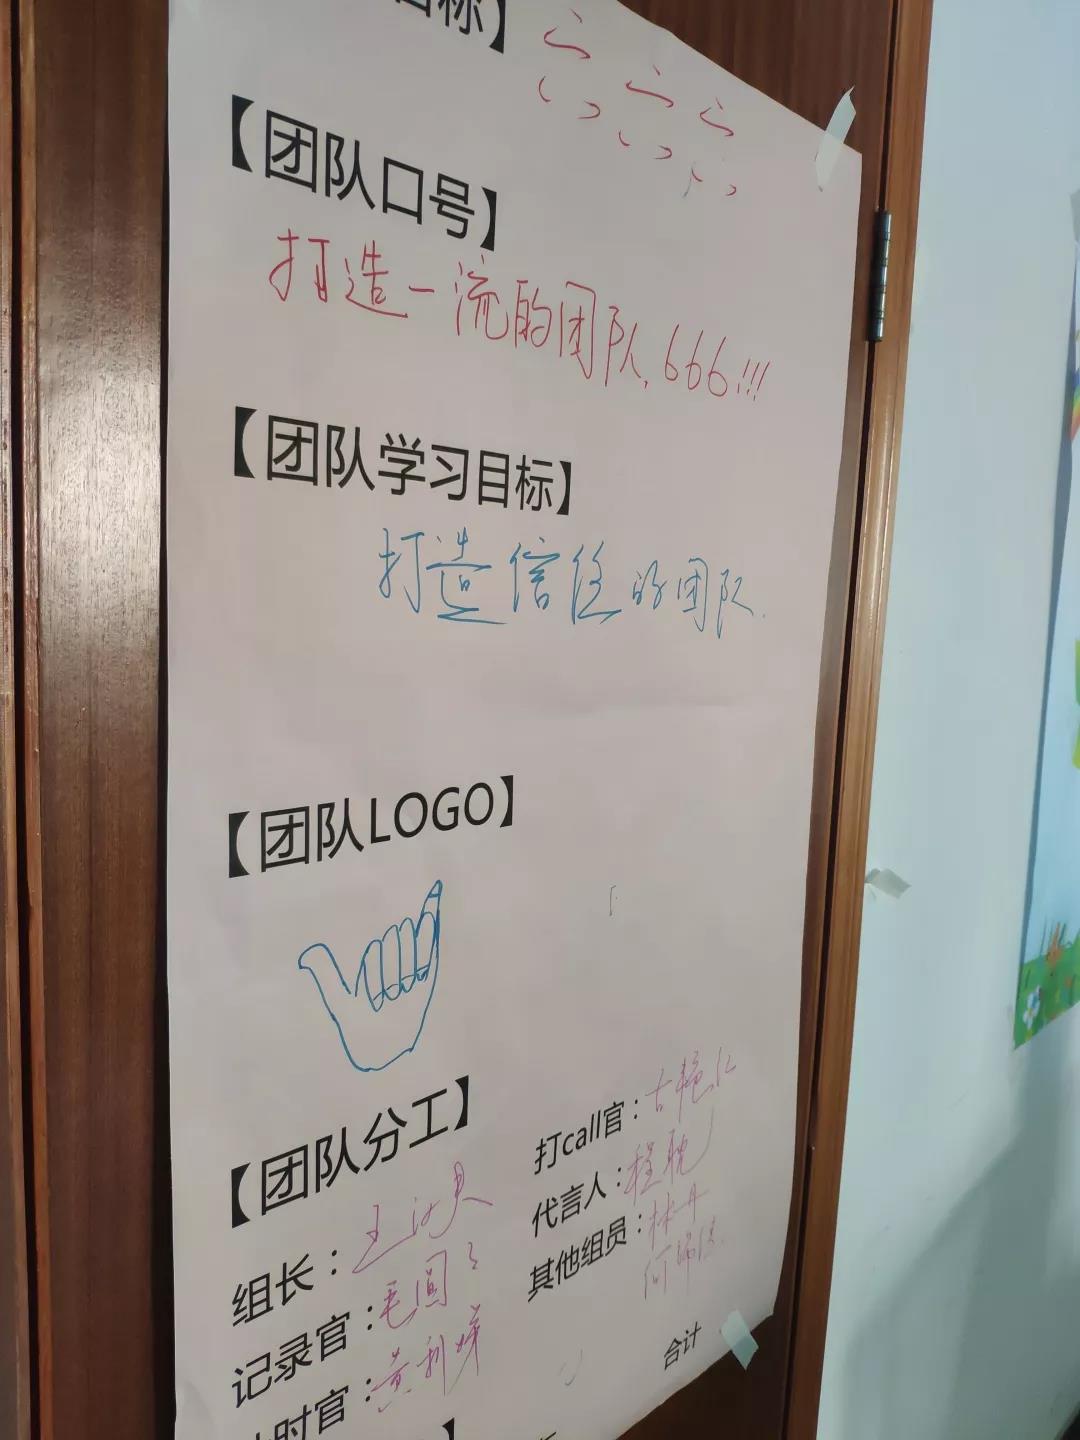 标】 六六六
【团队口号】
打造一流的团队,666!!!
【团队学习目标】
打造信任的团队.
【团队LOGO】
【团队分工】
组长:王
记录官:毛圆
时官:黄利
打call官:古艳
代言人:程艳
其他组员:林丹
何
合计